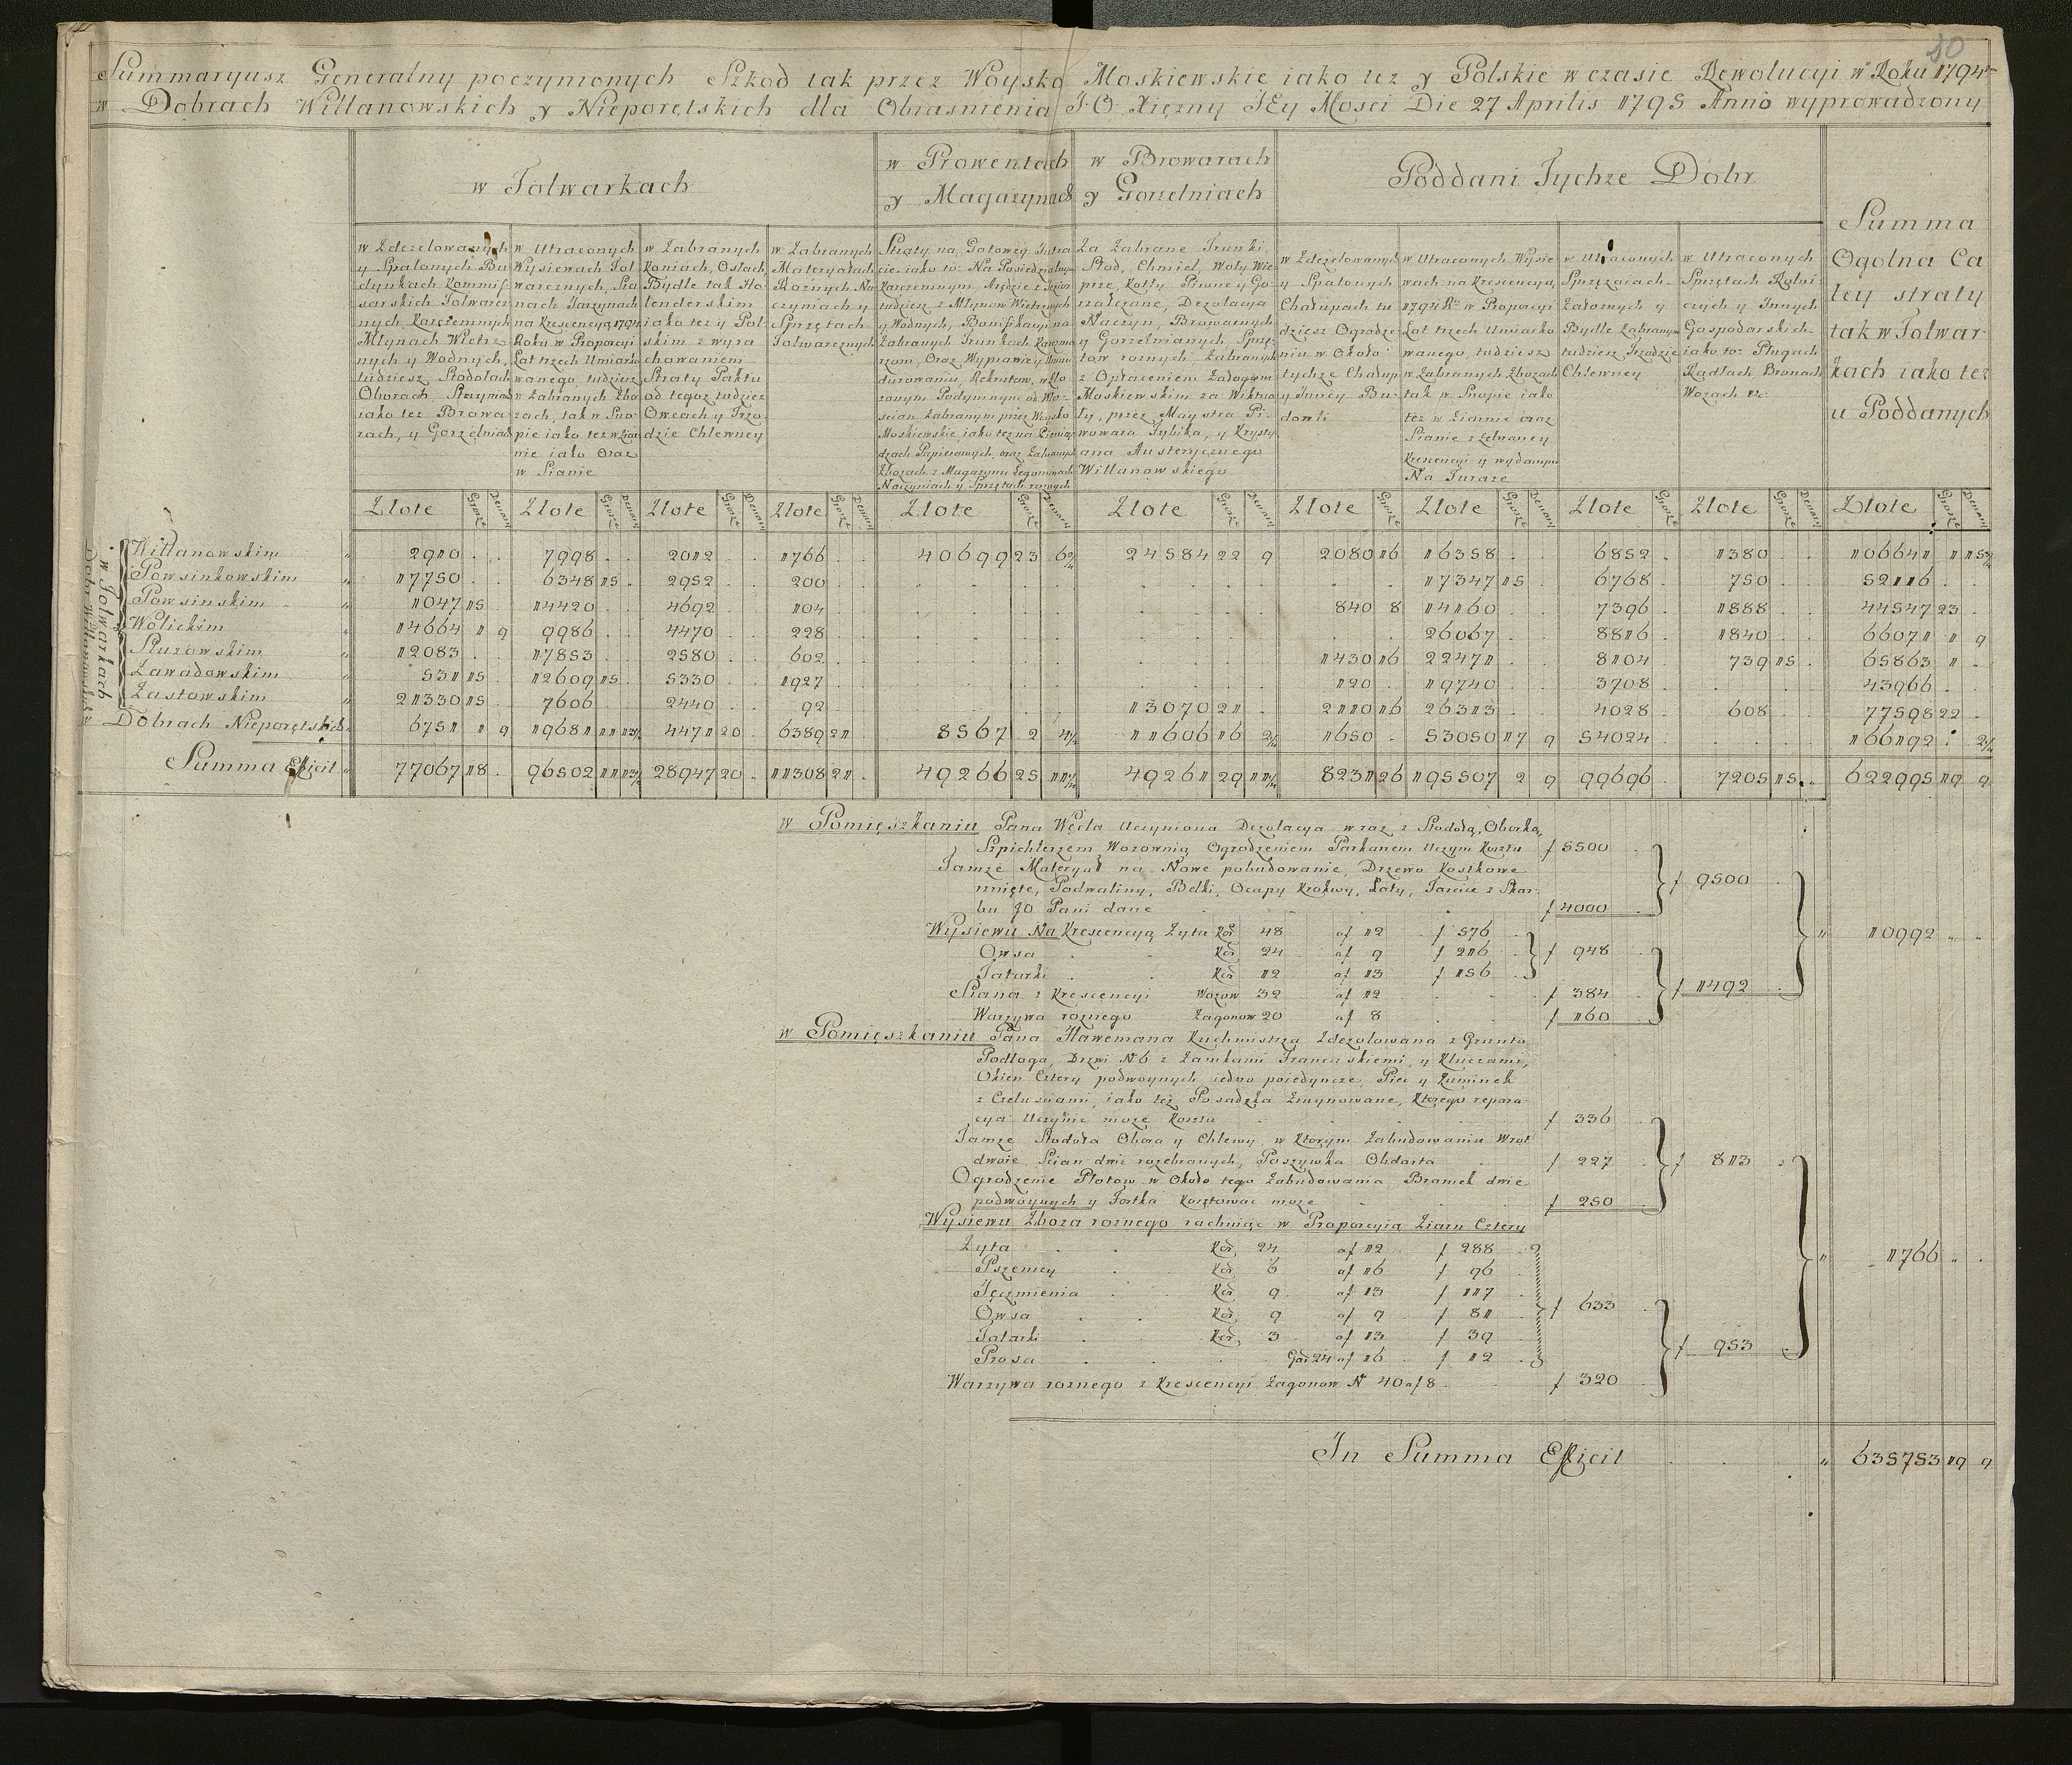 50
Summaryusz Generalny poczynionych Szkod tak przez Woysko Moskiewskie iako tez y Polskie w czasie Rewolucyi w Roku 1794
w Dobrach Willanowskich y Nieporętskich dla Obiasnienia J. O. Xiężny JEy Mosci Die 27 Aprilis 1795 Anno wyprowadzony
w Folwarkach
w Prowentach
y Magazynach
w Browarach
y Gorzelniach
Poddani Tychze Dobr
Summa
Ogolna Ca
łey straty
tak w Folwar-
kach iako tez
u Poddanych
w Zdezelowanych
y Spalonych Bu
dynkach Kommis
sarskich Folwarcz
nych, Karczemnych
Młynach Wietrz
nych y Wodnych,
tudziesz Stodołach
Oborach,
iako tez Browa
rach, y Gorzelniach
w Utraconych
Wysiewach Fol
warcznych, Sia
nach Jarzynach
na Krescencyą 1794
Roku w Proporcyi
Lat trzech Umiarko
wanego, tudziesz
w Zabranych Zbo
zach, tak w Sno-
pie iako tez w Ziar
nie iako Oraz
w Sianie
w Zabranych
Koniach, Osłach,
Bydle tak Ho-
lenderskim
iako tez y Pol-
skim z wyra
chowaniem
Straty Paktu
od tegoz tudziez
Owcach y Trzo-
dzie Chlewney
w Zabranych
Materyałach
Roznych Na
czyniach y
Sprzętach
Folwarcznych
Straty na Gotowey Intra
cie iako to: Na Posiedzialnym
Karczemnym,
tudziesz z Młynow Wietrznych
y Wodnych, Bonifikacyi na
Zabranych Trunkach Karczma
rzom, Oraz Wyprawie y Umun
durowaniu, Rekrutow, w Zło
zonym Podymnym od Wło-
scian Zabranym przez Woysko
Moskiewskie, iako tez na Pienią
dzach Papierowych, oraz Zabranych
Zbozach z Magazynu Legominach
Naczyniach y Sprzętach roznych
Za Zabrane Trunki,
Słod, Chmiel, Woły Wie
prze, Kotły Piwne y Go
rzałczane, Dezolacya
Naczyn, Browarnych
y Gorzelnianych Sprzę
tow roznych, Zabranych
z Opłaceniem Załogom
Moskiewskim za Wiktua
ły, przez Maystra Pi-
wowara Fybika, y Krysty
ana Austerycznego
Willanowskiego
w Zdezelowanych
y Spalonych
Chałupach tu
dziesz Ogrodze-
niu w Około
tychze Chałup
y Juney Bu-
dowli
w Utraconych Wysie
wach na Krescencyą
1794 Ru w Proporcyi
Lat trzech Umiarko
wanego, tudziesz
w Zabranych Zbozach
tak w Snopie iako
tez w Ziarnie oraz
Sianie z Zebraney
Krescencyi y wydanym
Na Furaze
w Utraconych
Sprzęzaiach
Załomych y
Bydle Zabranym
tudziesz Trzodzie
Chlewney
w Utraconych
Sprzętach Rolni
czych y Innych
Gospodarskich
iako to: Pługach
Radłach Bronach
Wozach etc:
Złote Grosze Złote Grosze Denary Złote Grosze Denary Złote Grosze Złote Grosze Denary Złote Złote Grosze Złote Grosze Denary Złote Grosze Złote Grosze Denary Złote Grosze Denary
w Folwarkach
Dobr Willanowskich
Willanowskim 2910 7998 2012 1766 40699 23 6 24584 22 9 2080 16 16358 6852 1380 106641 11
Powsinkowskim 17750 6348 15 2952 200 17347 15 6768 750 52116
Powsinskim 1047 15 14420 4692 104 840 8 14160 7396 1888 44547 23
Wolickim 14664 1 9 9986 4470 228 26067 8816 1840 66071 1 9
Służowskim 12083 17853 2580 602 1430 16 22471 8104 739 15 65863 1
Zawadowskim 531 15 12609 15 5330 1927 120 19740 3708 43966
Zastowskim 21330 15 7606 2440 92 13070 21 2110 16 26313 4028 608 77598 22
w Dobrach Nieporętskich 6751 1 9 19681 11 4471 20 6389 21 8567 2 11606 16 1650 53050 17 9 54024 166192
Summa Efficit 77067 18 96502 11 28947 20 11308 21 49266 25 49261 29 8231 26 195507 2 9 99696 7205 15 622995 19 9
w Pomięszkaniu Pana Węcla Uczyniona Dezolacya wraz z Stodołą, Oborką,
Szpichlerzem, Wozownią Ogrodzeniem Parkanem Uczyni Kosztu f 5500
Tamze Materyał na Nowe pobudowanie, Drzewo Kostkowe
rznięte, Podwaliny, Belki, Ocapy Krokwy, Łaty, Tarcice z Skar-
bu JO Pani dane f 4000
f 9500
Wysiewu Na Krescencyą Zyta Kor 48 af 12 f 576
Owsa Kor 24 af 9 f 216
Tatarki Kor 12 af 13 f 156
f 948
Siana z Krescencyi Wozow 32 af 12 f 384
Warzywa roznego Zagonow 20 af 8 f 160
f 1492
" 10992
w Pomięszkaniu Pana Hawemana Kuchmistrza Zdezolowana z Gruntu
Podłoga, Drzwi N 6 z Zamkami Francuskiemi, y Kluczami,
Okien Cztery podwoynych iedno poiedyncze, Piec y Kuminek
z Czeluściami, iako tez Posadzka Zruynowane, Ktorego repara
cya Uczynic moze Kosztu f 336
Tamze Stodoła Obora y Chlewy, w Ktorym Zabudowaniu Wrot
dwoie, Scian dwie rozebranych, Poszywka Obdarta f 227
Ogrodzenie Płotow w Około tego Zabudowania Bramek dwie
podwoynych y Fortka Kosztowac moze f 250
f 813
Wysiewu Zboza roznego rachuiąc w Proporcyią Ziarn Cztery
Zyta Kor 24 af 12 f 288
Pszenicy Kor 6 af 16 f 96
Jęczmienia Kor 9 af 13 f 117
Owsa Kor 9 af 9 f 81
Tatarki Kor 3 af 13 f 39
Prosa Gar 24 af 16 f 12
f 633
Warzywa roznego z Krescencyi Zagonow N 40 af 8 f 320
f 953
" 1766
In Summa Efficit " 635753 19 9